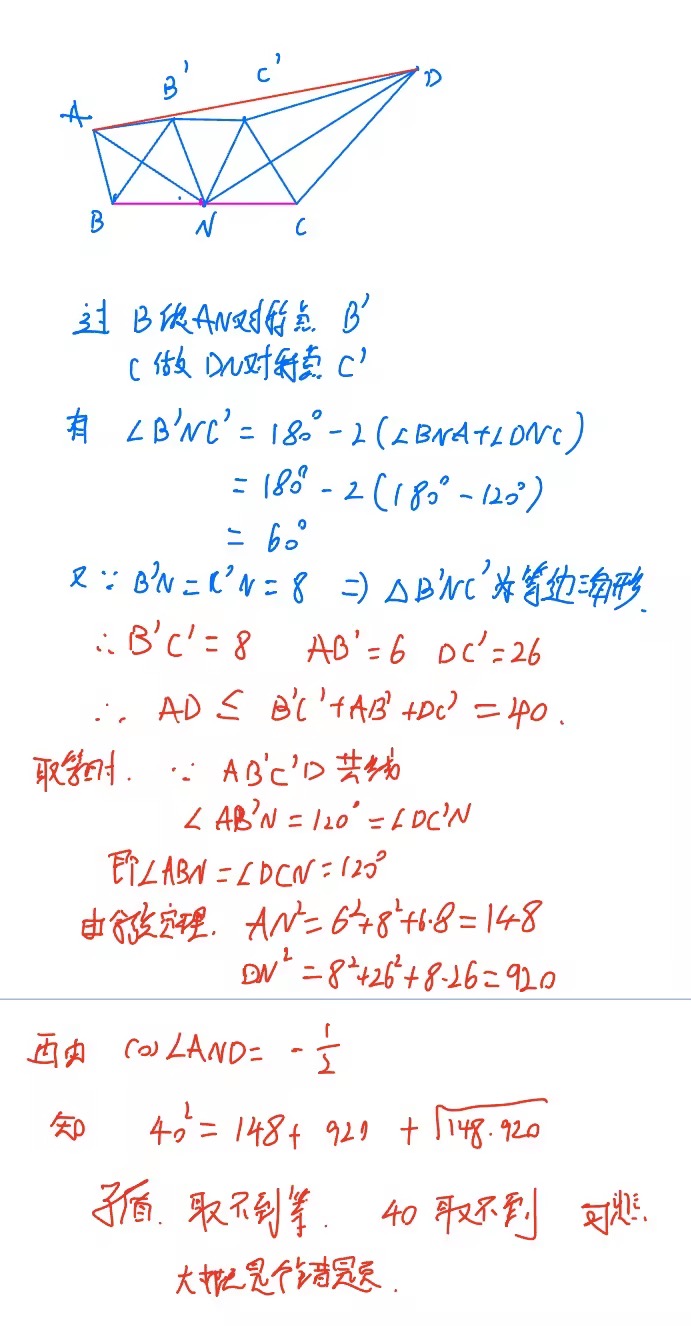 A B' C' D
B N C
过 B做AN对称点 B'
C 做 DN对称点 C'
有 ∠B'NC' = 180° - 2(∠BNA+∠DNC)
= 180° - 2(180° - 120°)
= 60°
又∵ B'N = C'N = 8 ⇒ △B'NC'为等边三角形.
∴ B'C' = 8 AB' = 6 DC' = 26
∴ AD ≤ B'C' + AB' + DC' = 40.
取等时. ∵ AB'C'D 共线
∠AB'N = 120° = ∠DC'N
即∠ABN = ∠DCN = 120°
由余弦定理. AN² = 6²+8²+6·8 = 148
DN² = 8²+26²+8·26 = 920
而由 cos∠AND = -1/2
知 40² = 148 + 920 + √148·920
矛盾. 取不到等. 40 取不到
大概是个错题.